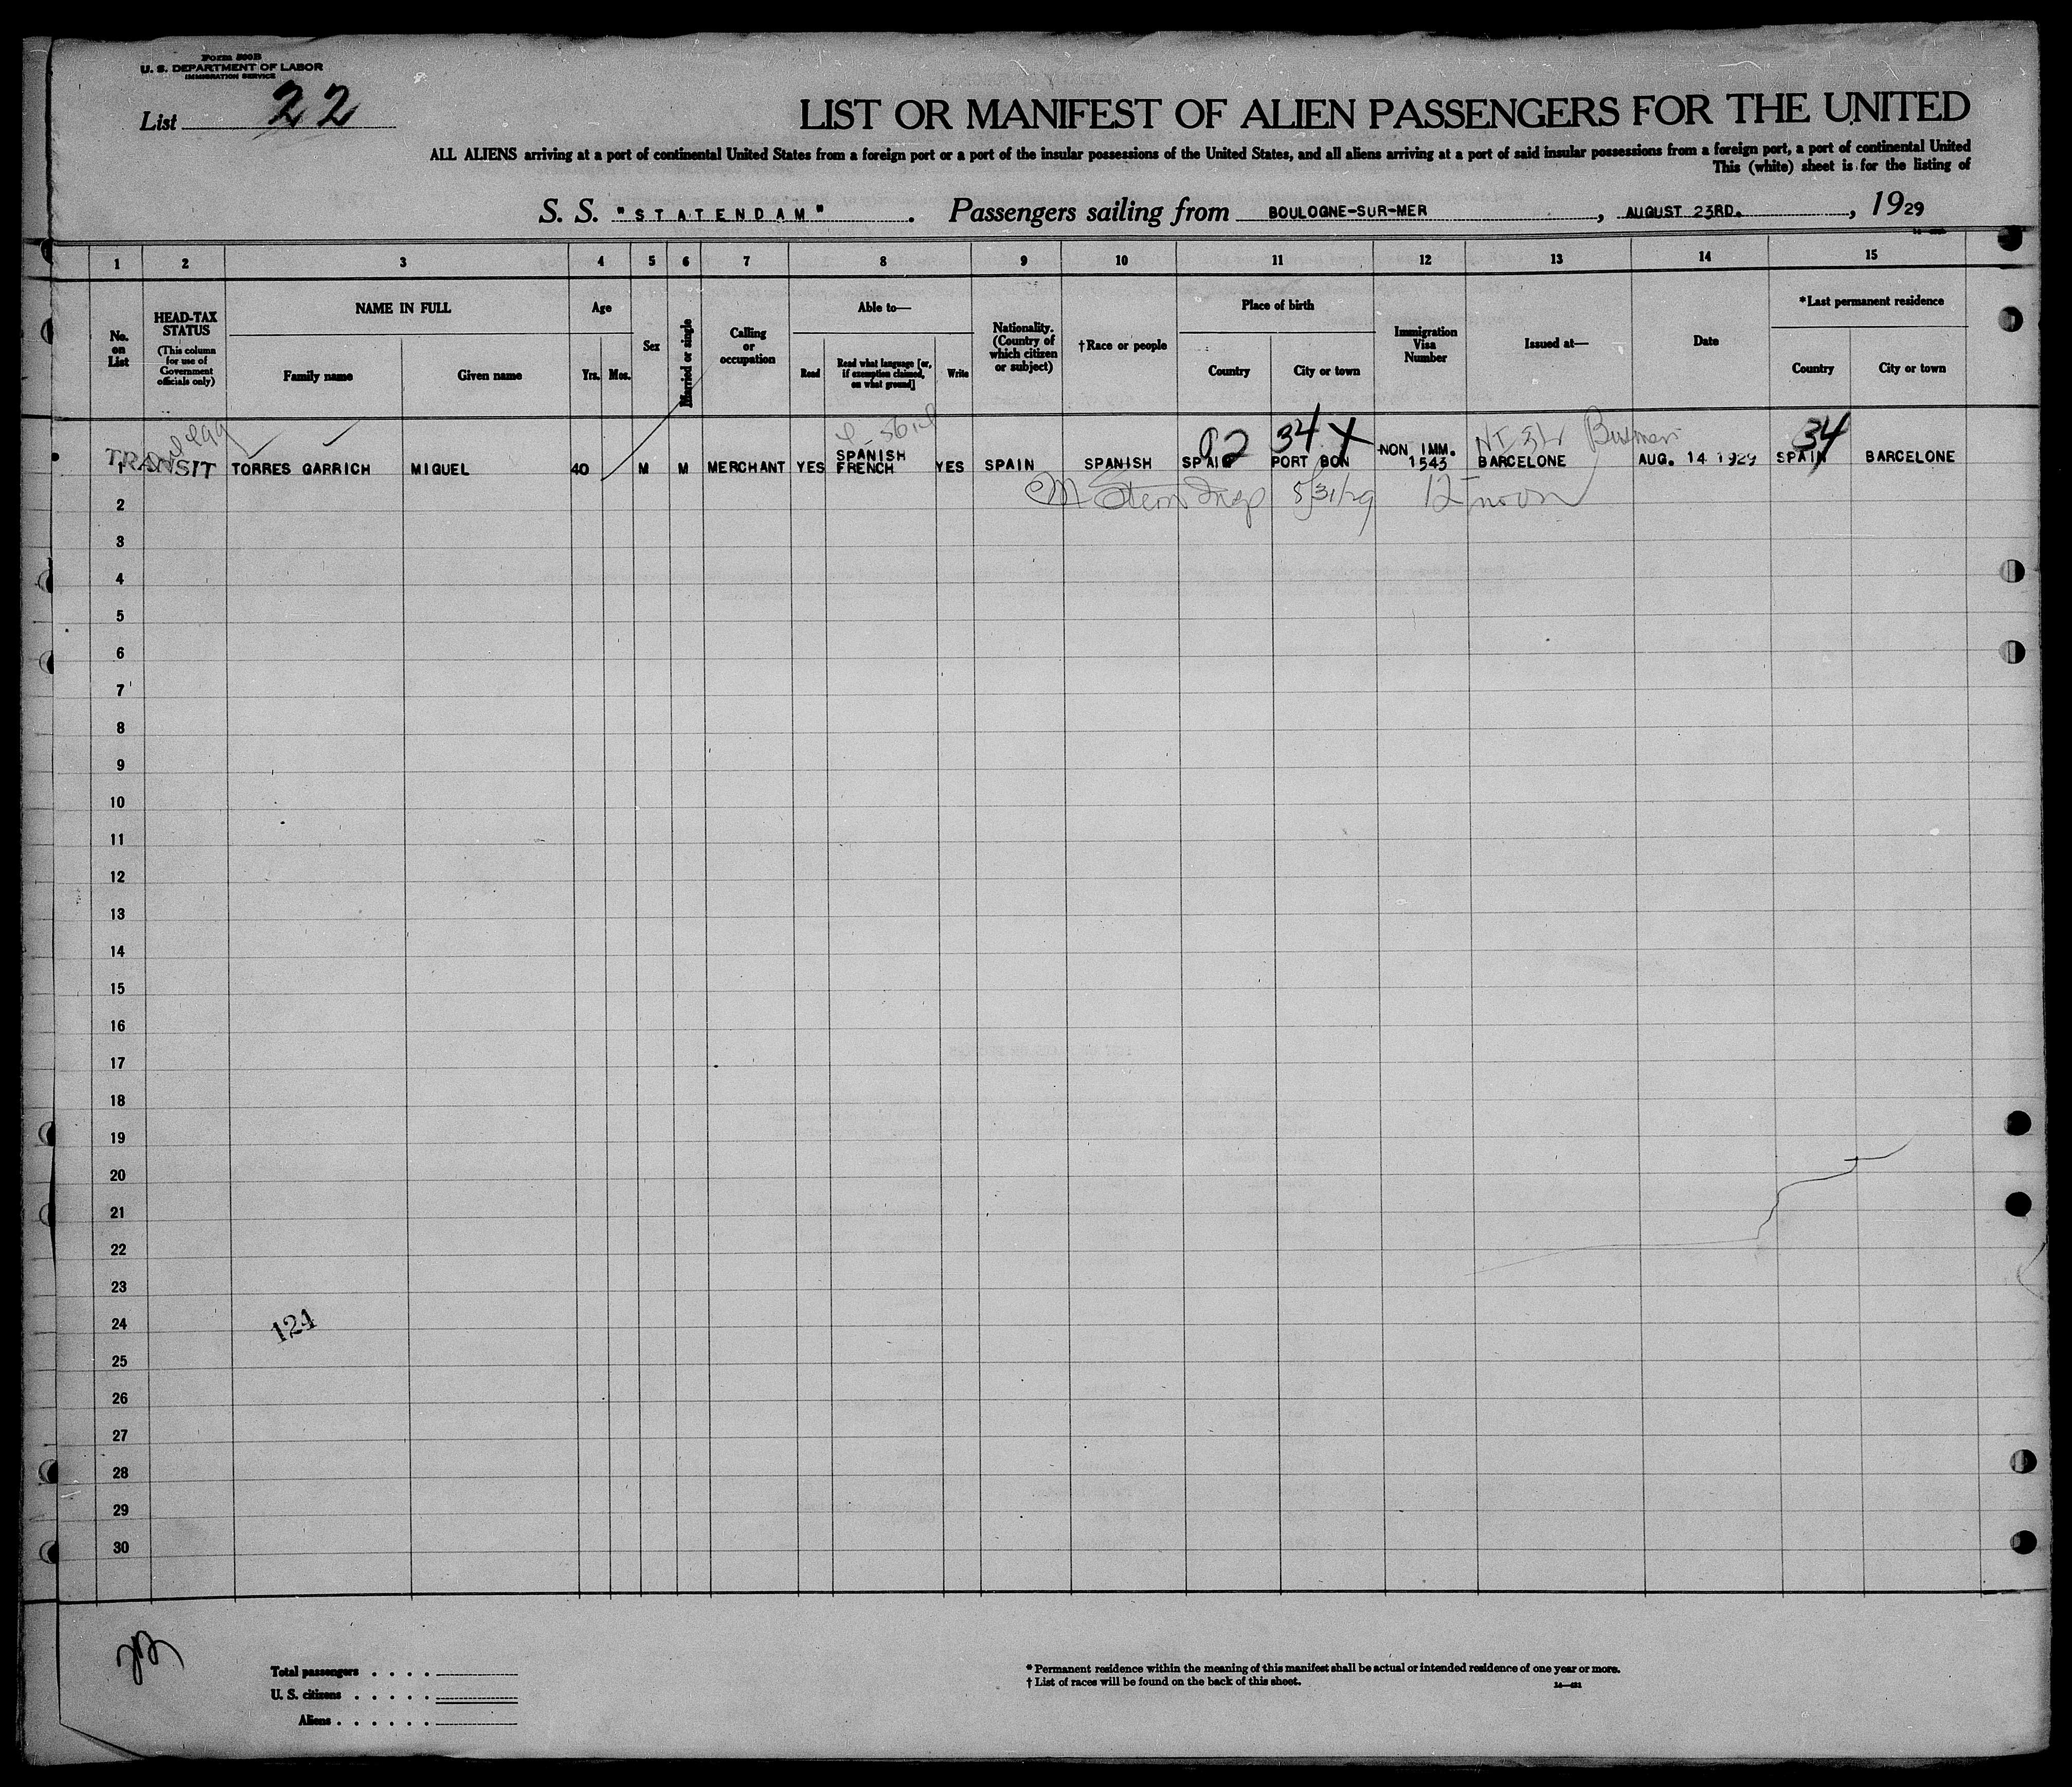 Form 500B
U. S. DEPARTMENT OF LABOR
IMMIGRATION SERVICE
List 22
LIST OR MANIFEST OF ALIEN PASSENGERS FOR THE UNITED
ALL ALIENS arriving at a port of continental United States from a foreign port or a port of the insular possessions of the United States, and all aliens arriving at a port of said insular possessions from a foreign port, a port of continental United
This (white) sheet is for the listing of
S. S. "STATENDAM" . Passengers sailing from BOULOGNE-SUR-MER , AUGUST 23RD. , 1929
1 2 3 4 5 6 7 8 9 10 11 12 13 14 15
No. on List
HEAD-TAX STATUS
(This column for use of Government officials only)
NAME IN FULL
Family name Given name
Age
Yrs. Mos.
Sex
Married or single
Calling or occupation
Able to—
Read
Read what language [or, if exemption claimed, on what ground]
Write
Nationality. (Country of which citizen or subject)
†Race or people
Place of birth
Country City or town
Immigration Visa Number
Issued at—
Date
*Last permanent residence
Country City or town
02 34 X 34
1 TRANSIT TORRES GARRICH MIGUEL 40 M M MERCHANT YES SPANISH FRENCH YES SPAIN SPANISH SPAIN PORT BON NON IMM. 1543 BARCELONE AUG. 14 1929 SPAIN BARCELONE
Stern Insp 8/31/29 12 noon
2
3
4
5
6
7
8
9
10
11
12
13
14
15
16
17
18
19
20
21
22
23
24
124
25
26
27
28
29
30
Total passengers
U. S. citizens
Aliens
* Permanent residence within the meaning of this manifest shall be actual or intended residence of one year or more.
† List of races will be found on the back of this sheet.